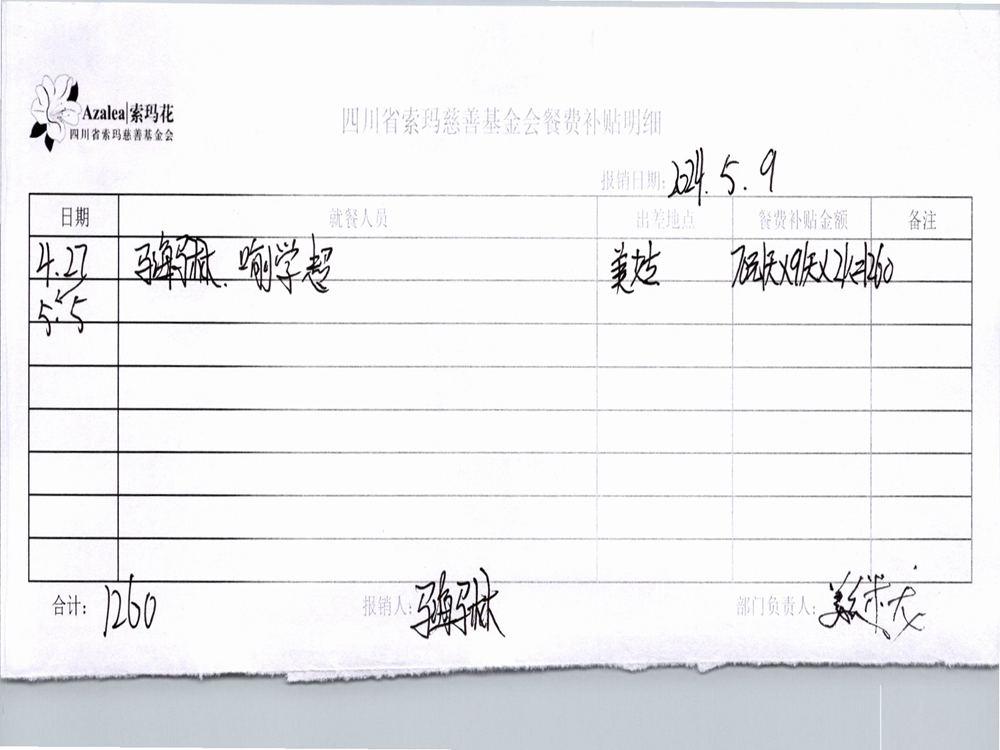 Azalea|索玛花
四川省索玛慈善基金会
四川省索玛慈善基金会餐费补贴明细
报销日期：2024.5.9
日期 就餐人员 出差地点 餐费补贴金额 备注
4.27 喻学超 70元/天×9天×2人=1260
5.5
合计：1260 报销人： 部门负责人：